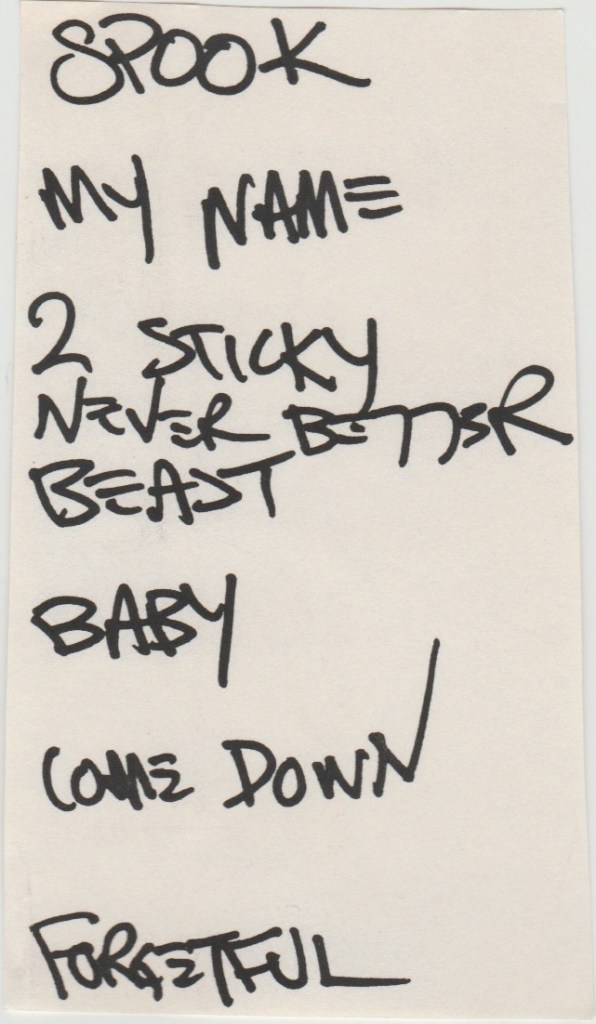 SPOOK
MY NAME
2 STICKY
NEVER BETTER
BEAST
BABY
COME DOWN
FORGETFUL